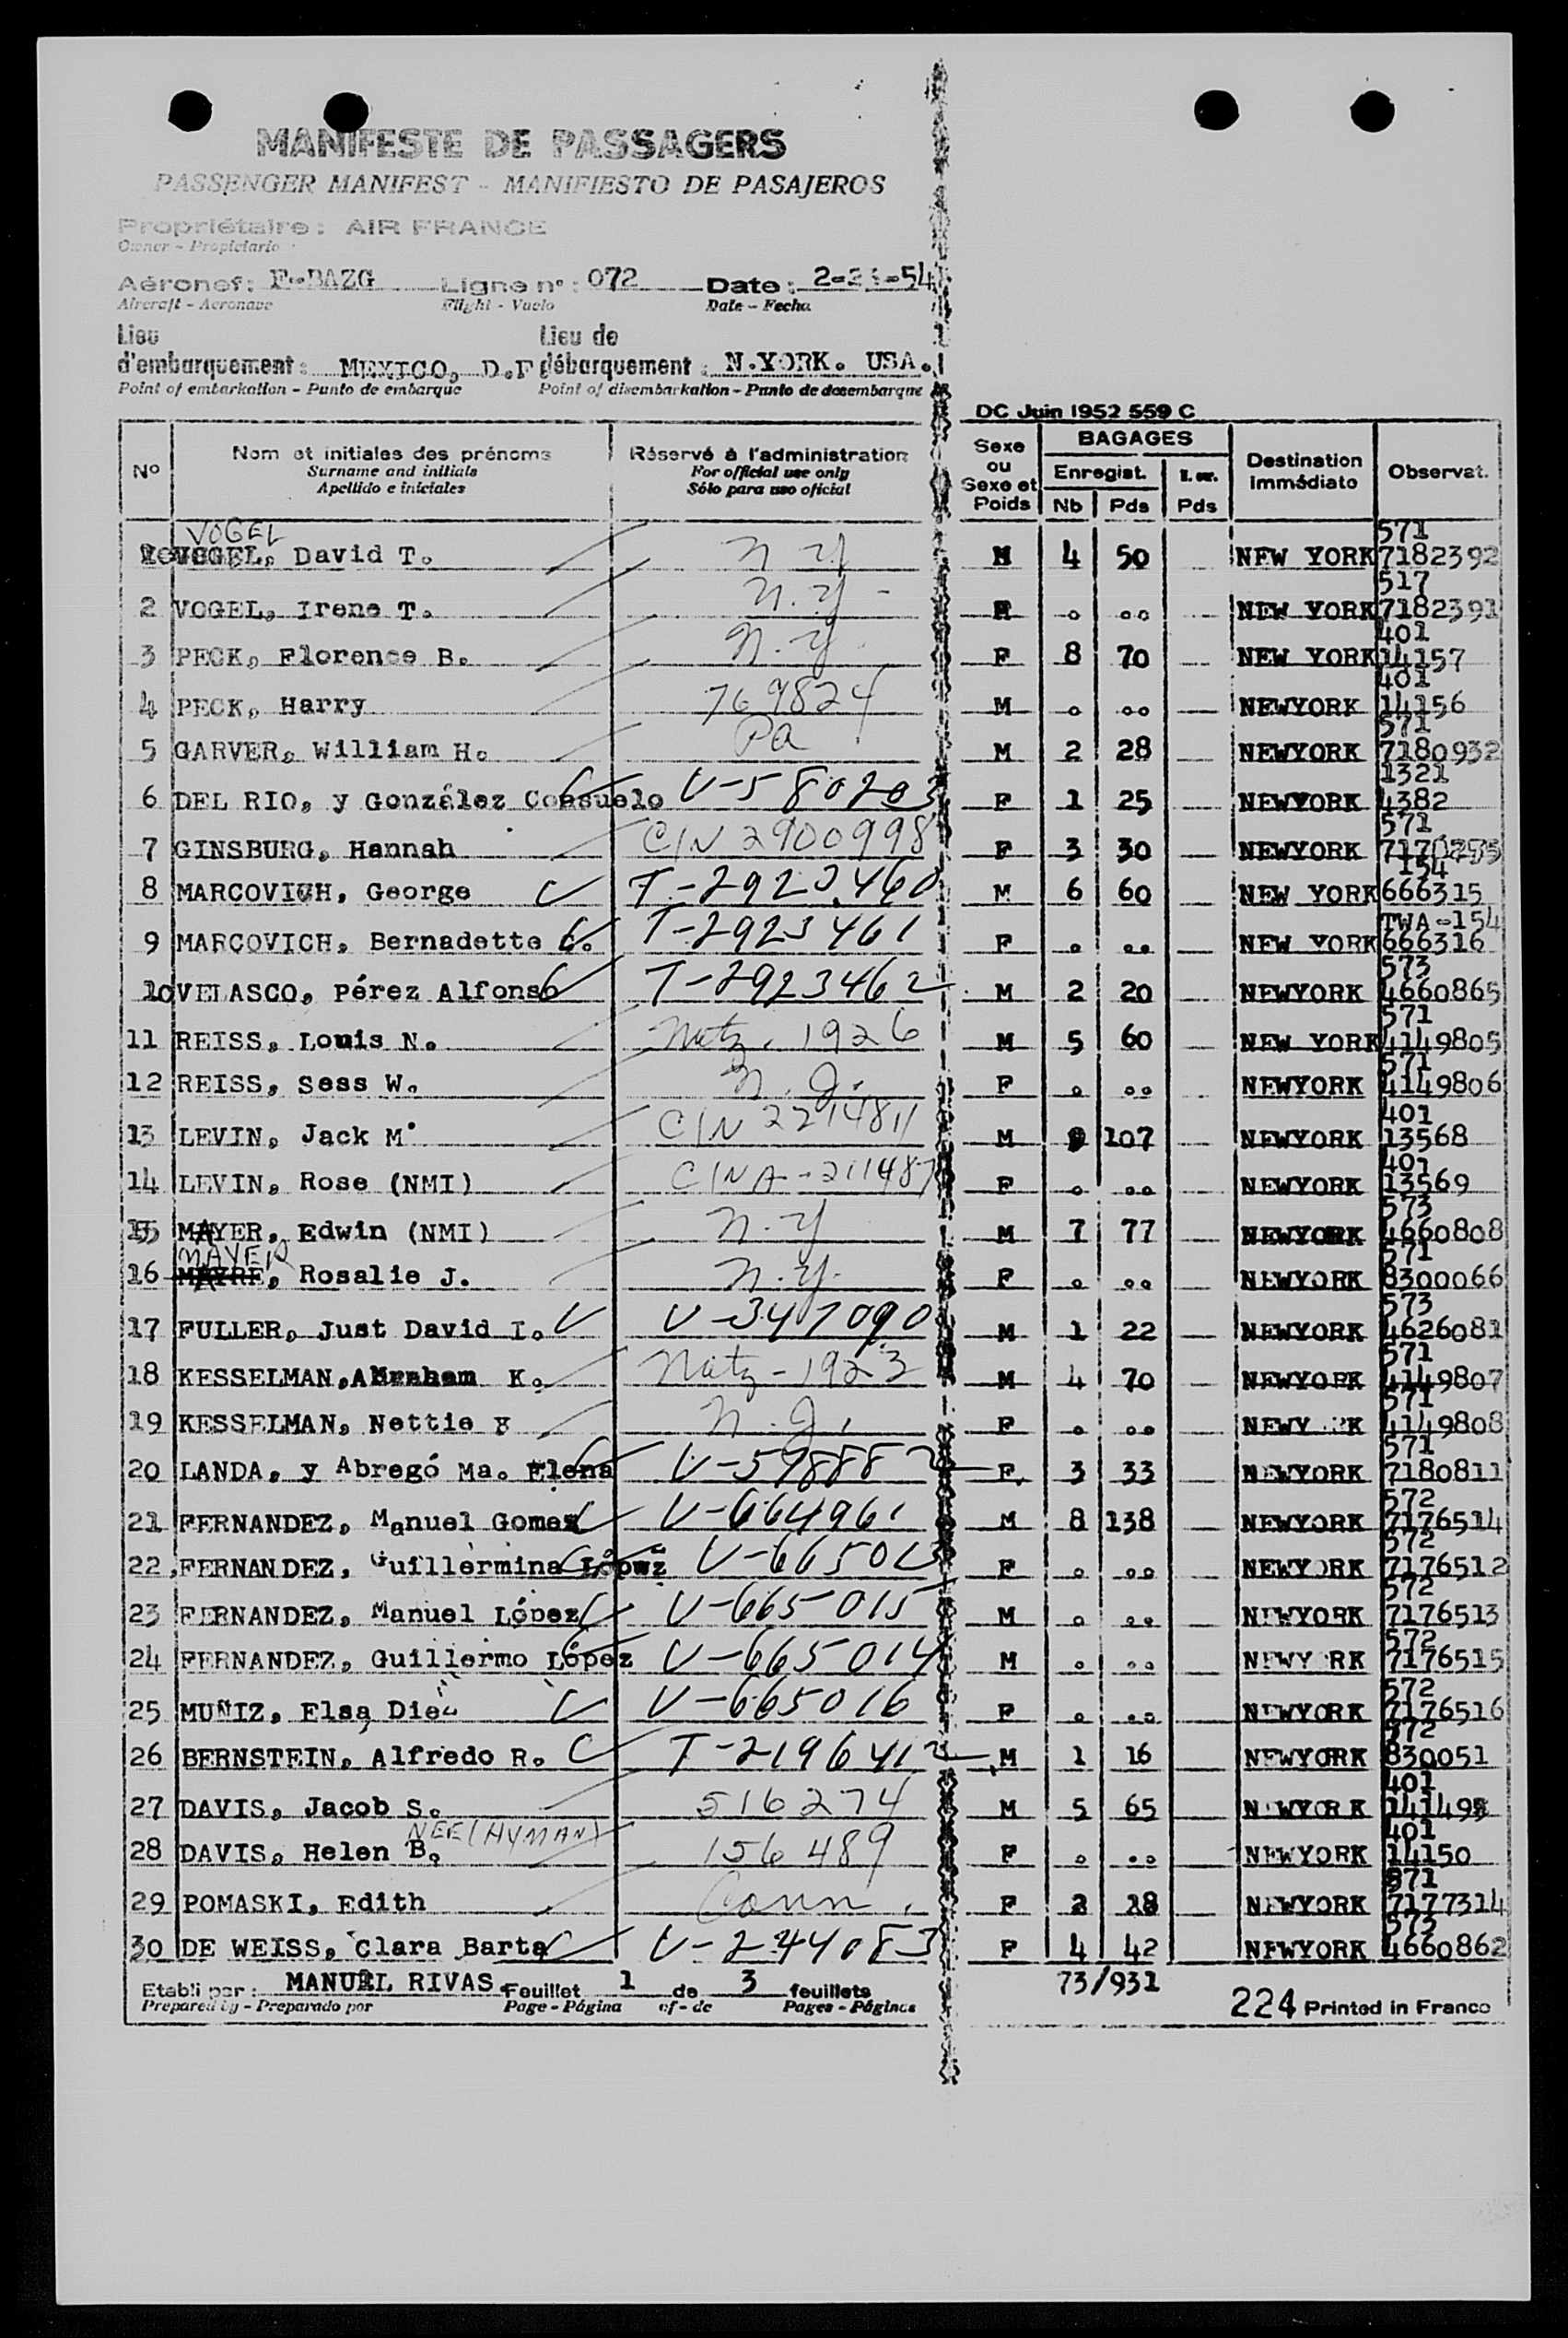 MANIFESTE DE PASSAGERS
PASSENGER MANIFEST - MANIFIESTO DE PASAJEROS
Propriétaire : AIR FRANCE
Owner - Propietario
Aéronef : F-BAZG Ligne n° : 072 Date : 2-23-54
Aircraft - Aeronave Flight - Vuelo Date - Fecha
Lieu Lieu de
d'embarquement : MEXICO, D.F débarquement : N.YORK. USA.
Point of embarkation - Punto de embarque Point of disembarkation - Punto de desembarque
DC Juin 1952 559 C
N° Nom et initiales des prénoms Réservé à l'administration Sexe ou Sexe et Poids BAGAGES Destination Immédiate Observat.
Surname and initials For official use only Enregist.
Apellido e iniciales Sólo para uso oficial Nb Pds Pds
VOGEL 571
VOGEL, David T. N Y M 4 50 NEW YORK 7182392
517
2 VOGEL, Irene T. N.Y - o oo NEW YORK 7182391
401
3 PECK, Florence B. N.Y. F 8 70 NEW YORK 14157
401
4 PECK, Harry 769824 M o oo NEWYORK 14156
571
5 GARVER, William H. Pa M 2 28 NEWYORK 7180932
1321
6 DEL RIO, y González Consuelo V-580203 F 1 25 NEWYORK 4382
571
7 GINSBURG, Hannah C/N 2900998 F 3 30 NEWYORK
154
8 MARCOVICH, George T-2923460 M 6 60 NEW YORK 666315
TWA-154
9 MARCOVICH, Bernadette T-2923461 F o oo NEW YORK 666316
573
10 VELASCO, Pérez Alfonso T-2923462 M 2 20 NEWYORK 4660865
571
11 REISS, Louis N. Natz. 1926 M 5 60 NEW YORK 4149805
571
12 REISS, Sess W. N.J. F o oo NEWYORK 4149806
401
13 LEVIN, Jack M. C/N 2214811 M 9 107 NEWYORK 13568
401
14 LEVIN, Rose (NMI) C/N A-211487 F o oo NEWYORK 13569
573
15 MAYER, Edwin (NMI) N.Y M 7 77 NEWYORK 4660808
MAYER 571
16 MAYRE, Rosalie J. N.Y. F o oo NEWYORK 8300066
573
17 FULLER, Just David I. V-347090 M 1 22 NEWYORK 4626081
571
18 KESSELMAN, Abraham K. Natz-1923 M 4 70 NEWYORK 4149807
571
19 KESSELMAN, Nettie N.J. F o oo NEWYORK 4149808
571
20 LANDA, y Abregó Ma. Elena V-598882 F 3 33 NEWYORK 7180811
572
21 FERNANDEZ, Manuel Gomez V-664961 M 8 138 NEWYORK 7176514
572
22 FERNANDEZ, Guillermina F o oo NEWYORK 7176512
572
23 FERNANDEZ, Manuel López V-665015 M o oo NEWYORK 7176513
572
24 FERNANDEZ, Guillermo López V-665014 M o oo NEWYORK 7176515
572
25 MUÑIZ, Elsa V-665016 F o oo NEWYORK 7176516
26 BERNSTEIN, Alfredo R. T-2196412 M 1 16 NEWYORK 830051
401
27 DAVIS, Jacob S. 516274 M 5 65 NEWYORK
NEE (HYMAN) 401
28 DAVIS, Helen B. 156489 F o oo NEWYORK 14150
29 POMASKI, Edith Conn. F NEWYORK 7177314
573
30 DE WEISS, Clara Barta V-244083 F 4 42 NEWYORK 4660862
Etabli par : MANUEL RIVAS. Feuillet 1 de 3 feuillets 73/931
Prepared by - Preparado por Page - Página of - de Pages - Páginas
224 Printed in France